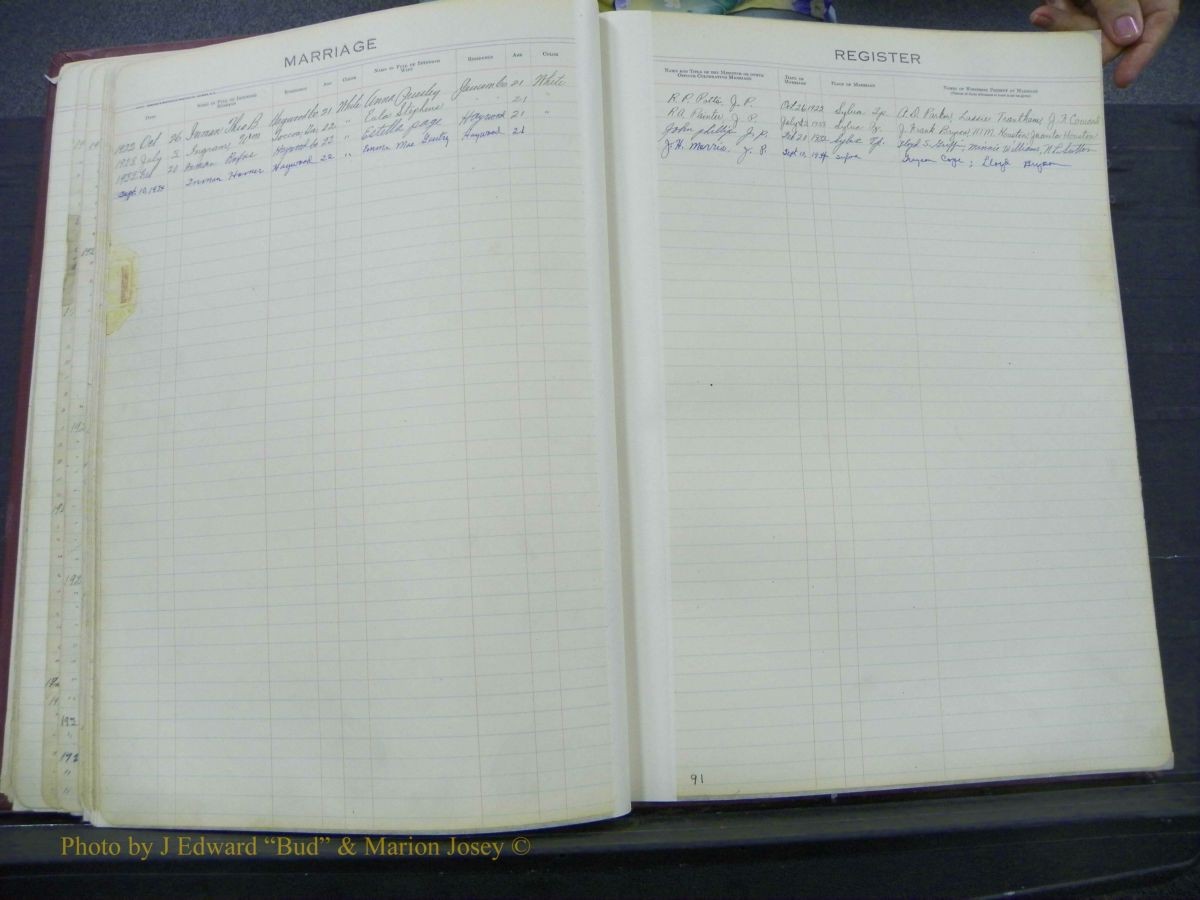 MARRIAGE
Date
Age
Color
Name in Full of Intended Wife
Residence
Age
Color
1922 Oct 26 Inman Theo B. Haywood Co 21 White Anna Pressley Luncombe 21 White
1923 July 3 Ingram, Wm 22 " Eula Stephens " 21 "
20 Inman Rofus Haywood Co 22 " Estella page Haywood 21
Sept. 10, 1934 Inman Homer Haywood 22 " Mae Gentry Haywood 21
REGISTER
Name and Title of the Minister or other Officer Celebrating Marriage
Date of Marriage
Place of Marriage
Names of Witnesses Present at Marriage
R. P. Potts J. P. Oct 26 1922 Sylva Tp. A. D. Parker, Lassie Trantham, J. F. Conard
R.A. Painter J. P. July 1923 Sylva Tp. J. Frank Bryson, W.M. Houston, Juanita Houston
John phillip J. P. 20 Sylva Tp. Floyd S. Griffin, Minnie Williams, Sutton
J. H. Morris J. P. Sept 10, 1934 Sylva Coge; Lloyd Bryson
91
Photo by J Edward “Bud” & Marion Josey ©